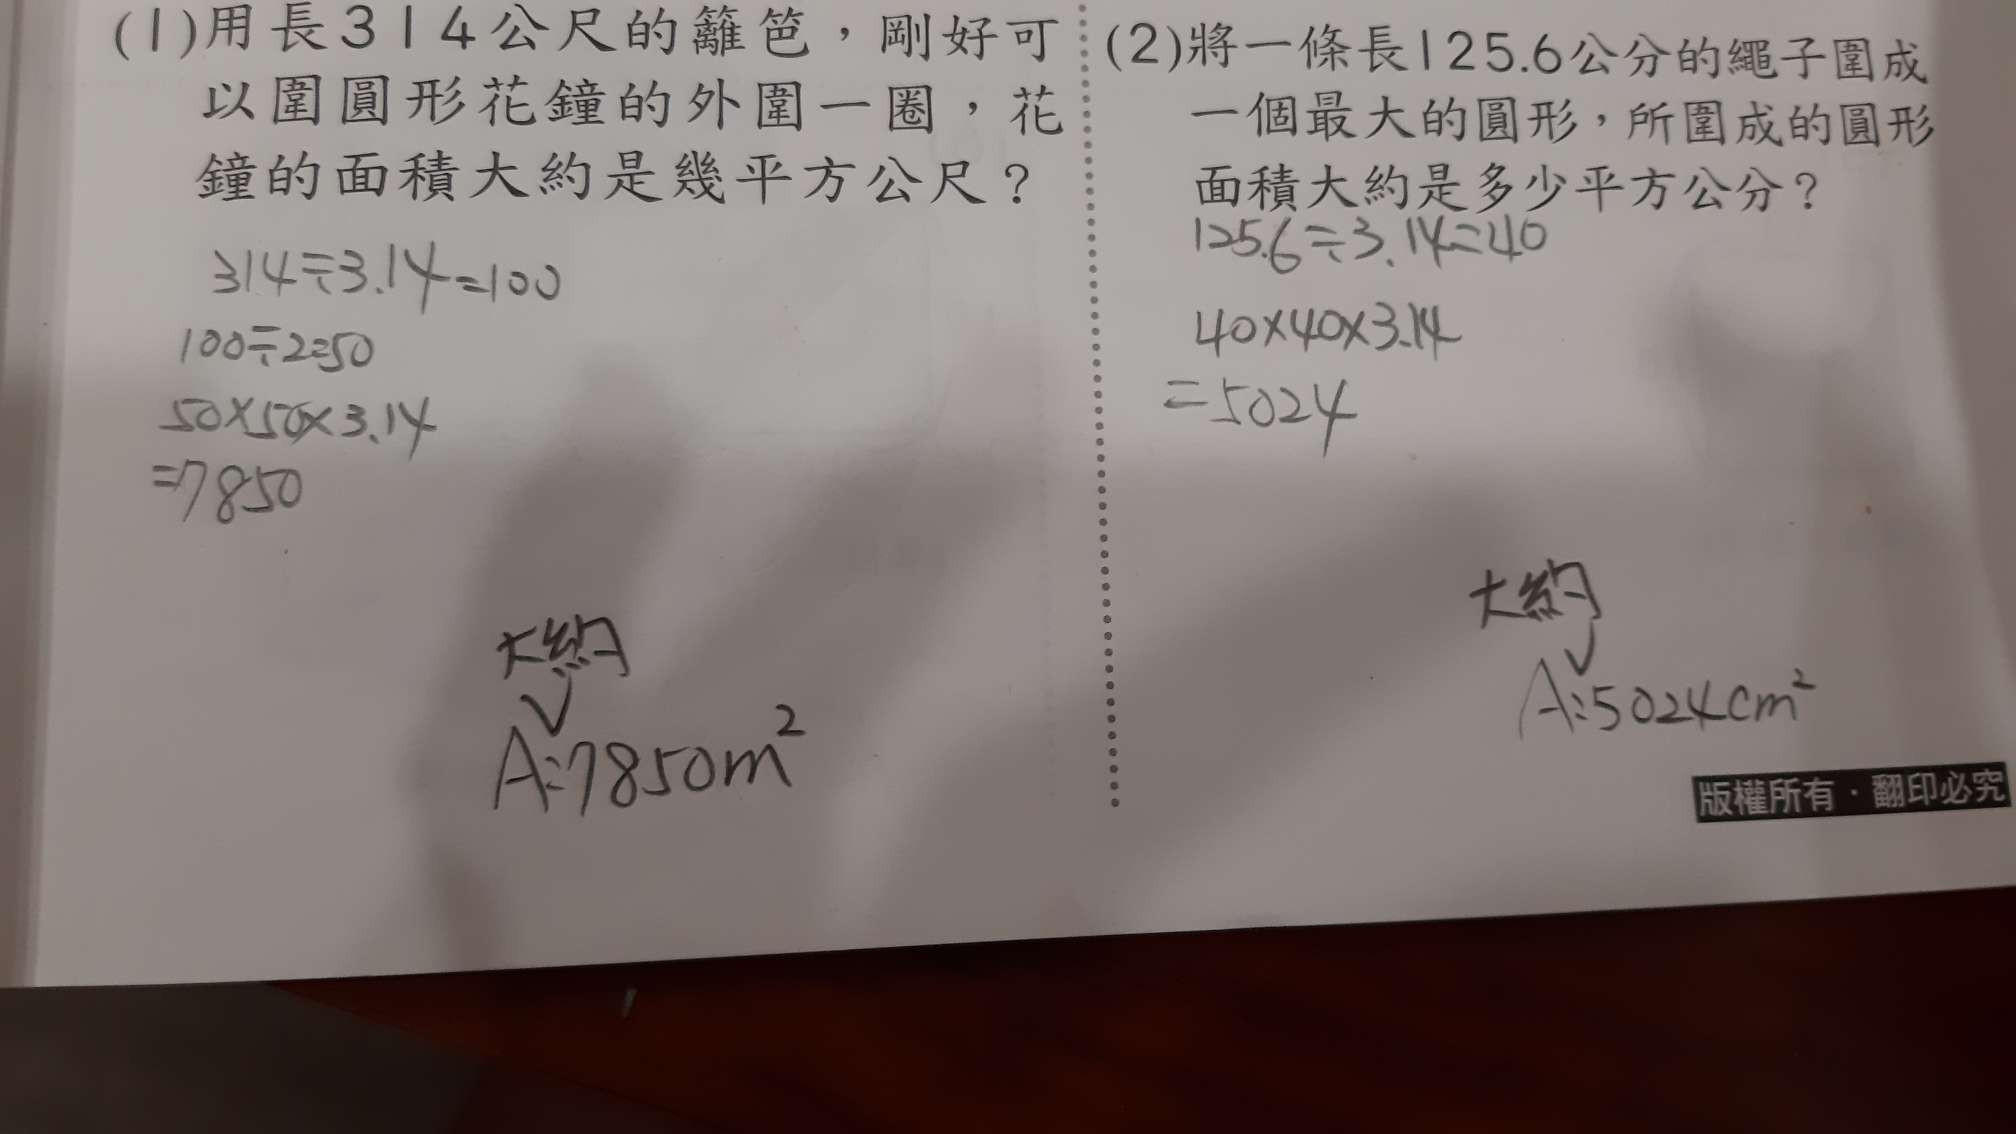 (1)用長314公尺的籬笆，剛好可
以圍圓形花鐘的外圍一圈，花
鐘的面積大約是幾平方公尺？
314÷3.14=100
100÷2=50
50×50×3.14
=7850
大約
A:7850m²
(2)將一條長125.6公分的繩子圍成
一個最大的圓形，所圍成的圓形
面積大約是多少平方公分？
125.6÷3.14=40
40×40×3.14
=5024
大約
A:5024cm²
版權所有·翻印必究